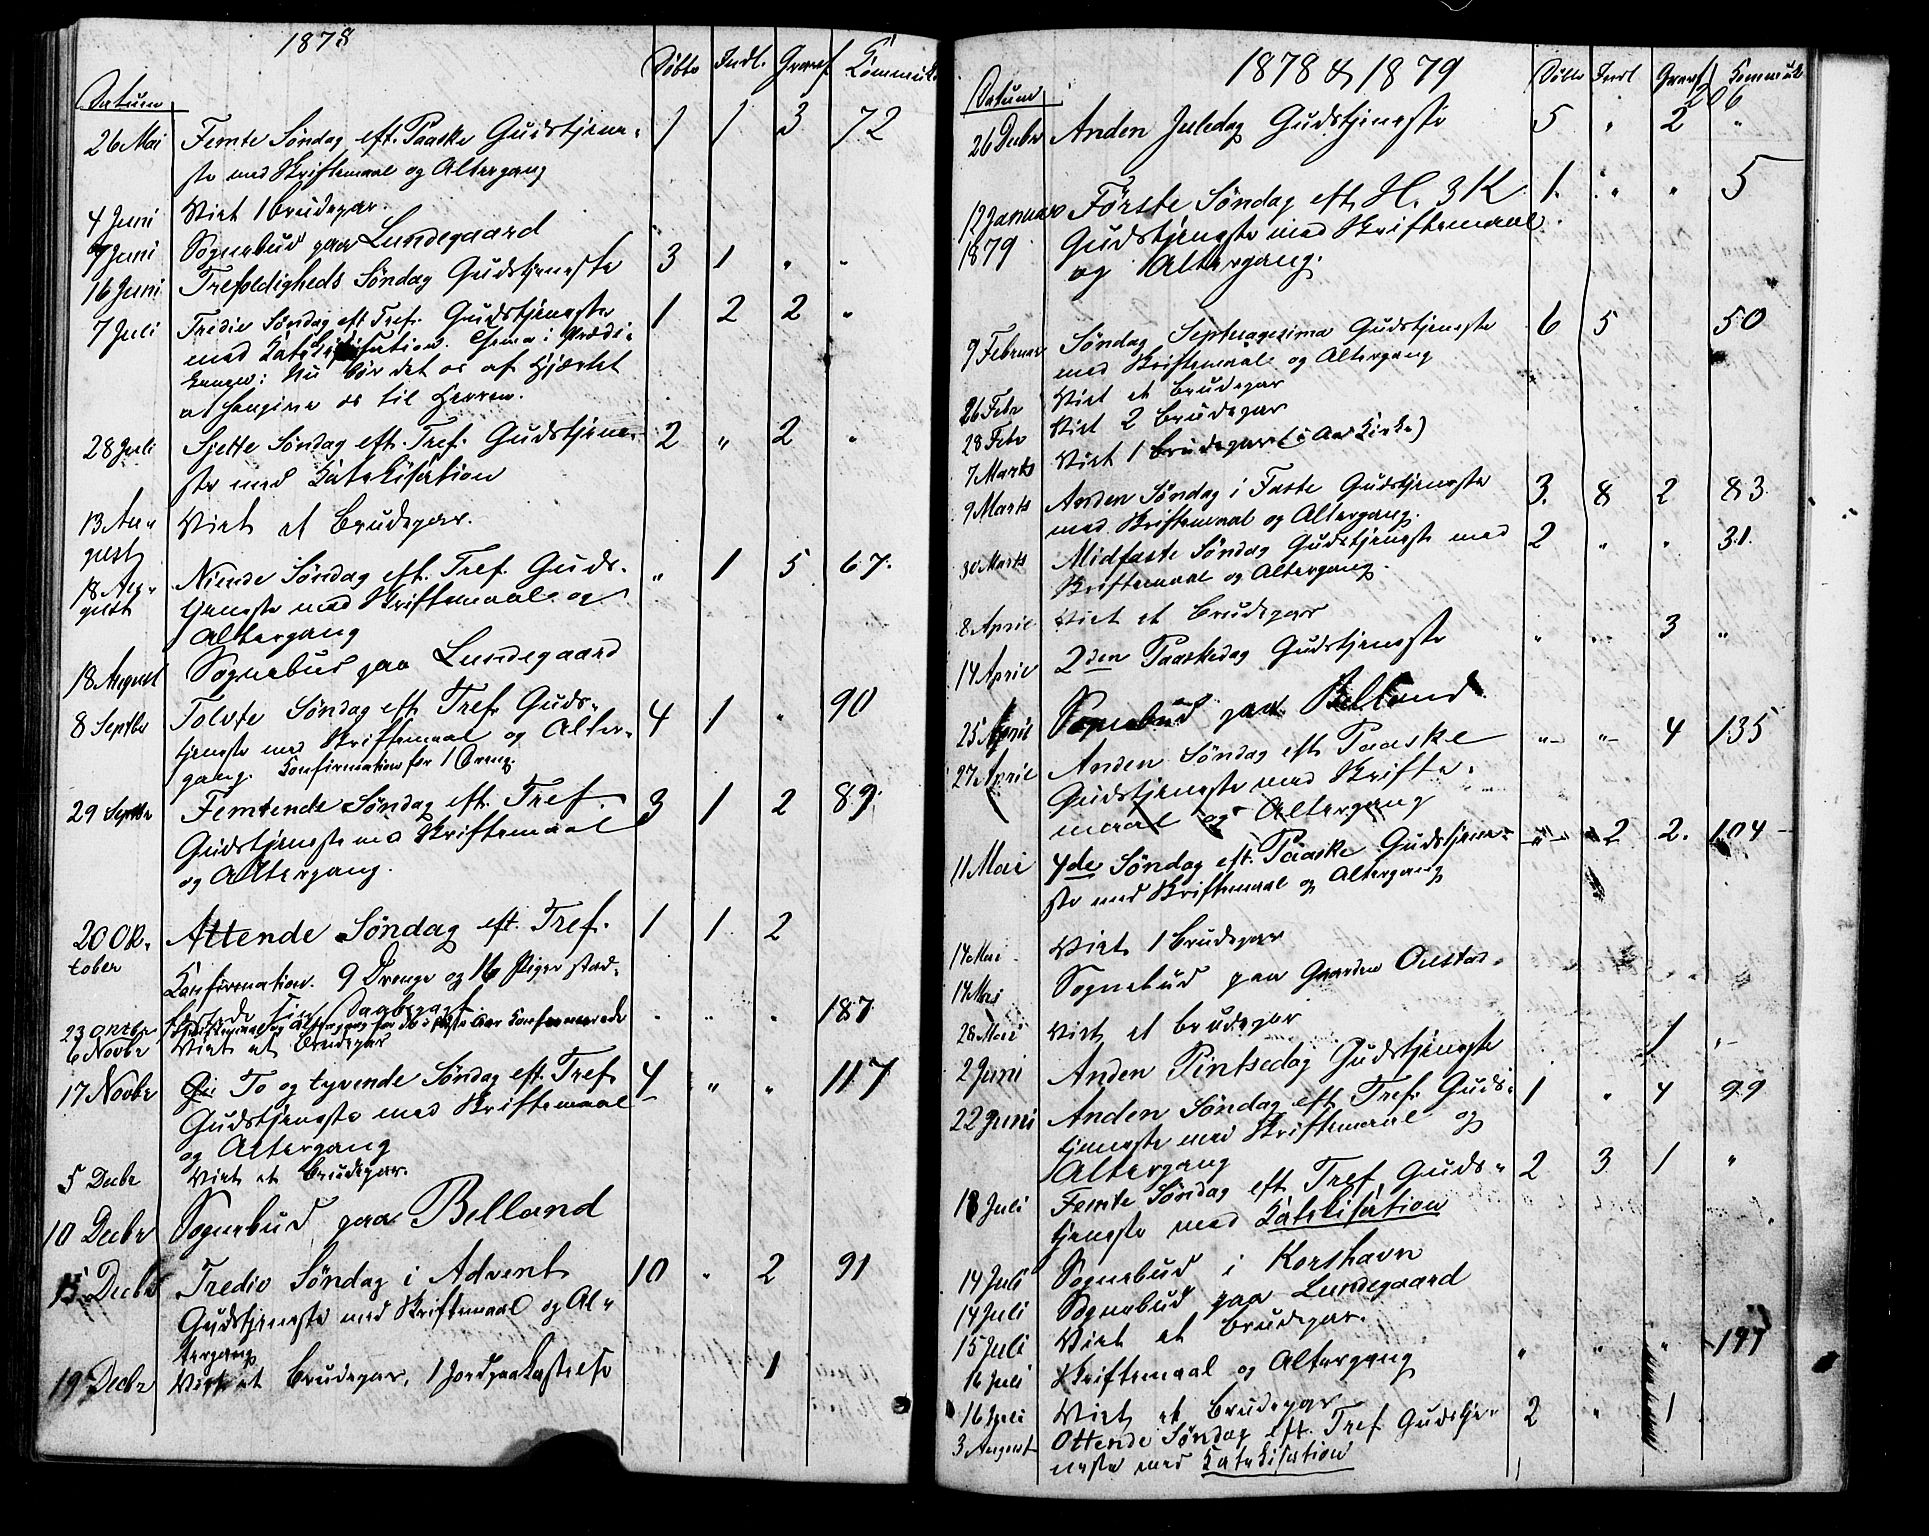 1878
Datum Døbte Indl. Græsf Kommuk.
26 Mai Femte Søndag eft. Paaske Gudstjene- 1 1 3 72
ste med Skriftemaal og Altergang
4 Juni Viet 1 Brudepar.
7 Juni Sognebud paa Lundegaard
16 Juni Trefoldigheds Søndag Gudstjeneste 3 1 " "
7 Juli Tredie Søndag eft Tref. Gudstjeneste 1 2 2 "
med Katekisation. Thema i Prædi-
kenen: Nu bør det os af Hjertet
at hengive os til Herren.
28 Juli Sjette Søndag eft. Tref. Gudstjene- 2 " 2 "
ste med Katekisation
13 Au- Viet et Brudepar.
gust
18 Au- Niende Søndag eft. Tref. Guds- " 1 5 67.
gust tjeneste med Skriftemaal og
Altergang
18 August Sognebud paa Lundegaard
8 Septbr Tolvte Søndag eft Tref. Guds- 4 1 " 90
tjeneste med Skriftemaal og Alter-
gang. Konfirmation for 1 Dreng.
29 Septbr Femtende Søndag eft. Tref. 3 1 2 89
Gudstjeneste med Skriftemaal
og Altergang.
20 Ok- Attende Søndag eft. Tref. 1 1 2
tober
Konfirmation. 9 Drenge og 16 Piger stad-
fæstede sin Daabspagt
23 Oktbr Skriftemaal og Altergang for de i siste Aar Konfirmerede " " " 187
6 Novbr Viet et Brudepar
17 Novbr To og tyvende Søndag eft. Tref 4 " " 117
Gudstjeneste med Skriftemaal
og Altergang
5 Decbr Viet et Brudepar.
10 Decbr Sognebud paa Belland
15 Decbr Tredie Søndag i Advent 10 " 2 91
Gudstjeneste med Skriftemaal og Al-
tergang
19 Decbr Viet et Brudepar, 1 Jordpaakastelse 1
1878 & 1879
Datum Døbte Indl Græsf Kommuk
206
26 Decbr Anden Juledag Gudstjeneste 5 " 2 "
12 Januar Første Søndag eft. H. 3 K 1. " " 5
1879 Gudstjeneste med Skriftemaal
og Altergang.
9 Februar Søndag Septuagesima Gudstjeneste 6 5 50
med Skriftemaal og Altergang
26 Febr Viet et Brudepar
28 Febr Viet 2 Brudepar
7 Marts Viet 1 Brudepar (i Aa Kirke)
9 Marts Anden Søndag i Faste Gudstjeneste 3. 8 2 83
med Skriftemaal og Altergang.
30 Marts Midfaste Søndag Gudstjeneste med 2 " " 31.
Skriftemaal og Altergang.
8 April Viet et Brudepar
14 April 2den Paaskedag Gudstjeneste " " 3 "
25 April Sognebud paa Belland
27 April Anden Søndag eft Paaske " " 4 135
Gudstjeneste med Skrifte-
maal og Altergang
11 Mai 4de Søndag eft. Paaske Gudstjene- " 2 2. 104
ste med Skriftemaal og Altergang
14 Mai Viet 1 Brudepar
14 Mai Sognebud paa Gaarden
28 Mai Viet et Brudepar
2 Juni Anden Pintsedag Gudstjeneste 1 "
22 Juni Anden Søndag eft Tref. Guds- 1 " 4 99
tjeneste med Skriftemaal og
Altergang
13 Juli Femte Søndag eft Tref. Guds- 2 3 1 "
tjeneste med Katekisation
14 Juli Sognebud i Korshavn
14 Juli Sognebud paa Lundegaard
15 Juli Viet et Brudepar.
16 Juli Skriftemaal og Altergang " " " 197
16 Juli Viet et Brudepar
3 August Ottende Søndag eft. Tref. Gudstje- 2 " 1
neste med Katekisation